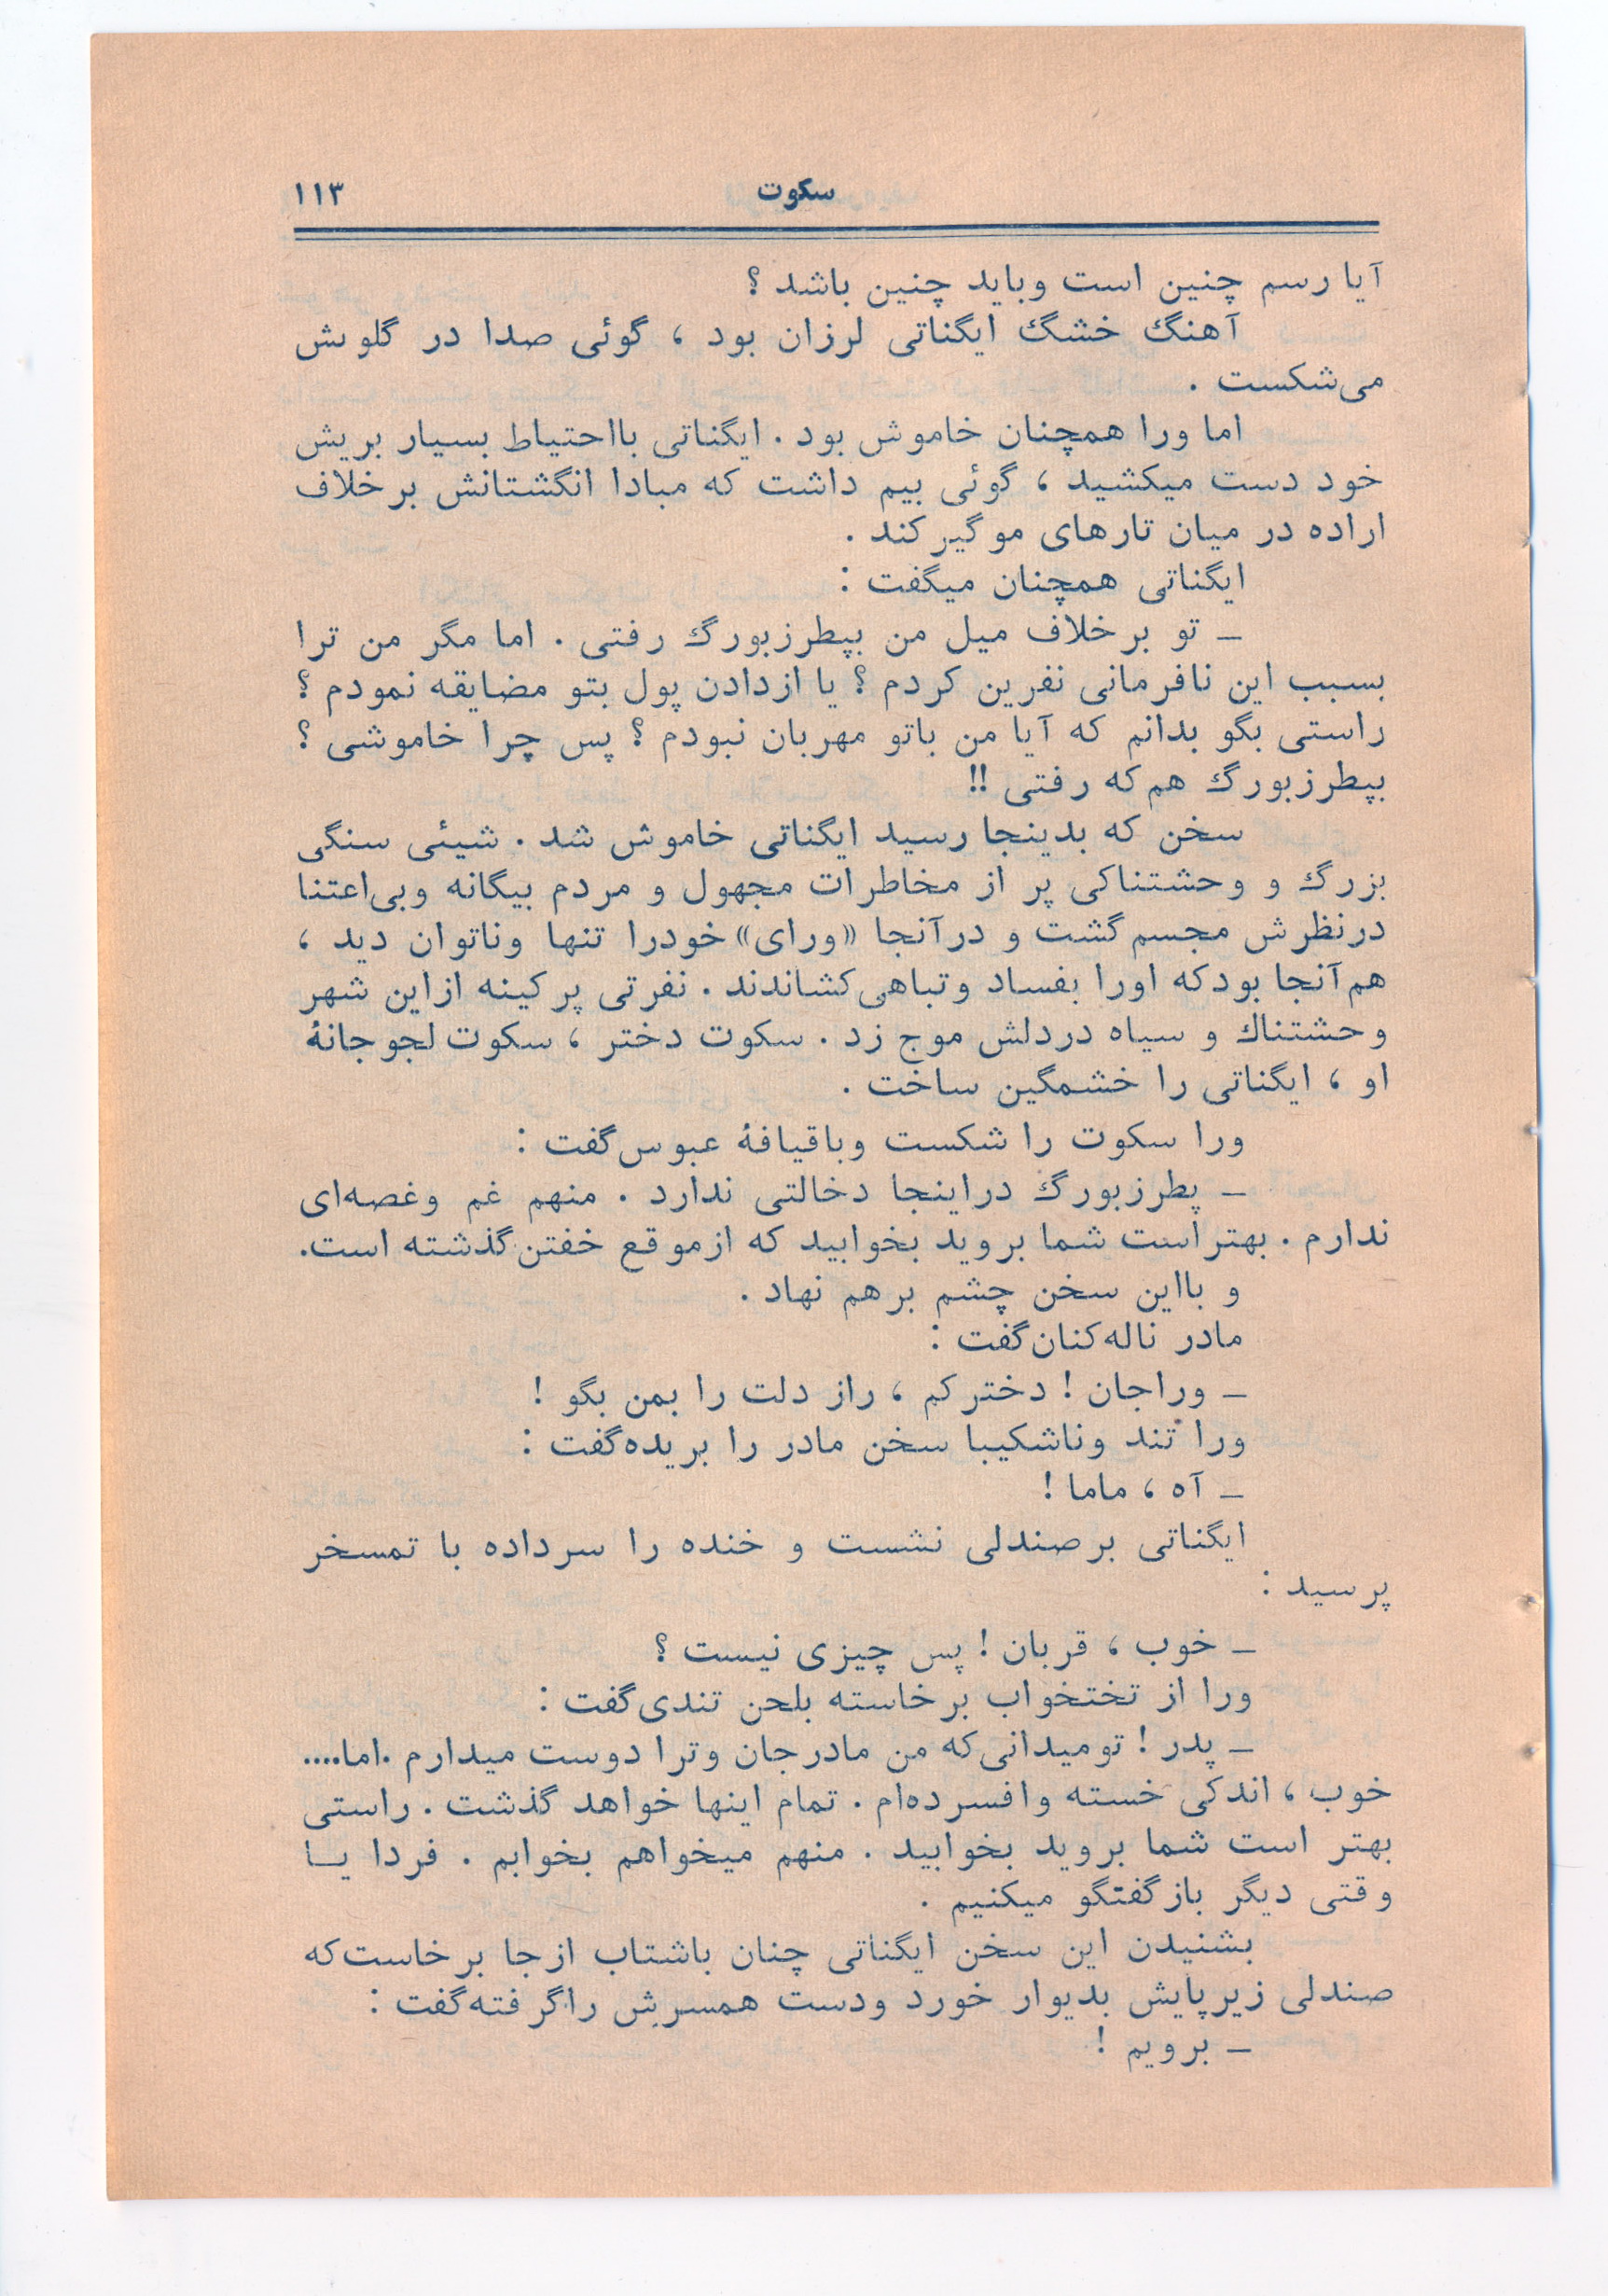 سکوت ۱۱۳
آیا رسم چنین است وباید چنین باشد ؟
آهنگ خشگ ایگناتی لرزان بود ، گوئی صدا در گلویش
می‌شکست .
اما ورا همچنان خاموش بود . ایگناتی بااحتیاط بسیار بریش
خود دست میکشید ، گوئی بیم داشت که مبادا انگشتانش برخلاف
اراده در میان تارهای مو گیر کند .
ایگناتی همچنان میگفت :
ــ تو برخلاف میل من بپطرزبورگ رفتی . اما مگر من ترا
بسبب این نافرمانی نفرین کردم ؟ یا ازدادن پول بتو مضایقه نمودم ؟
راستی بگو بدانم که آیا من باتو مهربان نبودم ؟ پس چرا خاموشی ؟
بپطرزبورگ هم که رفتی !!
سخن که بدینجا رسید ایگناتی خاموش شد . شیئی سنگی
بزرگ و وحشتناکی پر از مخاطرات مجهول و مردم بیگانه وبی‌اعتنا
درنظرش مجسم گشت و درآنجا «ورای» خودرا تنها وناتوان دید ،
هم آنجا بود که اورا بفساد وتباهی کشاندند . نفرتی پر کینه ازاین شهر
وحشتناك و سیاه دردلش موج زد . سکوت دختر ، سکوت لجوجانهٔ
او ، ایگناتی را خشمگین ساخت .
ورا سکوت را شکست وباقیافهٔ عبوس گفت :
ــ پطرزبورگ دراینجا دخالتی ندارد . منهم غم وغصه‌ای
ندارم . بهتر است شما بروید بخوابید که ازموقع خفتن گذشته است.
و بااین سخن چشم برهم نهاد .
مادر ناله کنان گفت :
ــ وراجان ! دخترکم ، راز دلت را بمن بگو !
ورا تند وناشکیبا سخن مادر را بریده گفت :
ــ آه ، ماما !
ایگناتی برصندلی نشست و خنده را سرداده با تمسخر
پرسید :
ــ خوب ، قربان ! پس چیزی نیست ؟
ورا از تختخواب برخاسته بلحن تندی گفت :
ــ پدر ! تو میدانی که من مادرجان وترا دوست میدارم .اما....
خوب ، اندکی خسته وافسرده‌ام . تمام اینها خواهد گذشت . راستی
بهتر است شما بروید بخوابید . منهم میخواهم بخوابم . فردا یــا
وقتی دیگر بازگفتگو میکنیم .
بشنیدن این سخن ایگناتی چنان باشتاب ازجا برخاست که
صندلی زیرپایش بدیوار خورد ودست همسرش راگرفته گفت :
ــ برویم !